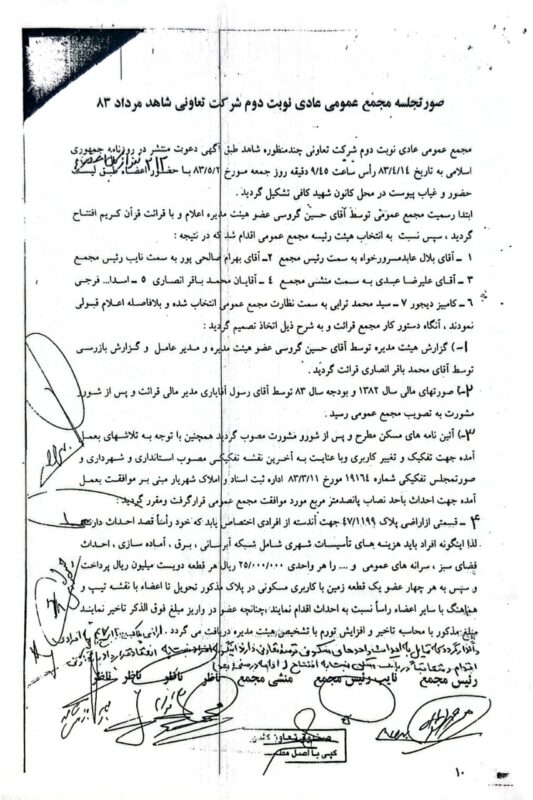 صورتجلسه مجمع عمومی عادی نوبت دوم شرکت تعاونی شاهد مرداد ۸۳
مجمع عمومی عادی نوبت دوم شرکت تعاونی چندمنظوره شاهد طبق آگهی دعوت منتشر در روزنامه جمهوری
اسلامی به تاریخ ۸۳/۴/۱۴ رأس ساعت ۹/۴۵ دقیقه روز جمعه مورخ ۸۳/۵/۲ با حضور اعضاء طبق لیست
حضور و غیاب پیوست در محل کانون شهید کافی تشکیل گردید .
ابتدا رسمیت مجمع عمومی توسط آقای حسین گروسی عضو هیئت مدیره اعلام و با قرائت قرآن کریم افتتاح
گردید ، سپس نسبت به انتخاب هیئت رئیسه مجمع عمومی اقدام شد که در نتیجه :
۱ – آقای بلال عابدسرورخواه به سمت رئیس مجمع ۲– آقای بهرام صالحی پور به سمت نایب رئیس مجمع
۳ – آقای علیرضا عبدی به سمت منشی مجمع ۴ – آقایان محمد باقر انصاری ۵ – اسدا... فرجی
۶ – کامبیز دیجور ۷ – سید محمد ترابی به سمت نظارت مجمع عمومی انتخاب شده و بلافاصله اعلام قبولی
نمودند ، آنگاه دستور کار مجمع قرائت و به شرح ذیل اتخاذ تصمیم گردید :
۱–) گزارش هیئت مدیره توسط آقای حسین گروسی عضو هیئت مدیره و مدیر عامل و گزارش بازرسی
توسط آقای محمد باقر انصاری قرائت گردید .
۲–) صورتهای مالی سال ۱۳۸۲ و بودجه سال ۸۳ توسط آقای رسول آقاباری مدیر مالی قرائت و پس از شور و
مشورت به تصویب مجمع عمومی رسید .
۳–) آئین نامه های مسکن مطرح و پس از شورو مشورت مصوب گردید همچنین با توجه به تلاشهای بعمل
آمده جهت تفکیک و تغییر کاربری وبا عنایت به آخرین نقشه تفکیکی مصوب استانداری و شهرداری و
صورتمجلس تفکیکی شماره ۱۹۱۶۴ مورخ ۸۳/۳/۱۱ اداره ثبت اسناد و املاک شهریار مبنی بر موافقت بعمل
آمده جهت احداث باحد نصاب پانصدمتر مربع مورد موافقت مجمع عمومی قرارگرفت ومقرر گردید :
۴ – قسمتی ازاراضی پلاک ۴۷/۱۱۹۹ جهت آندسته از افرادی اختصاص یابد که خود رأساً قصد احداث دارند
لذا اینگونه افراد باید هزینه های تأسیسات شهری شامل شبکه آبرسانی ، برق ، آماده سازی ، احداث
فضای سبز ، سرانه های عمومی و .... را هر واحدی ۲۵/۰۰۰/۰۰۰ ریال هر قطعه دویست میلیون ریال پرداخت
و سپس به هر چهار عضو یک قطعه زمین با کاربری مسکونی در پلاک مذکور تحویل تا اعضاء با نقشه تیپ و
هماهنگ با سایر اعضاء رأساً نسبت به احداث اقدام نمایند ،چنانچه عضو در واریز مبلغ فوق الذکر تاخیر نمایند
مبلغ مذکور با محاسبه تاخیر و افزایش تورم با تشخیص هیئت مدیره دریافت می گردد .
رئیس مجمع نایب رئیس مجمع منشی مجمع ناظر ناظر ناظر ناظر
صندوق تعاون کشور
کپی با اصل
۱۰